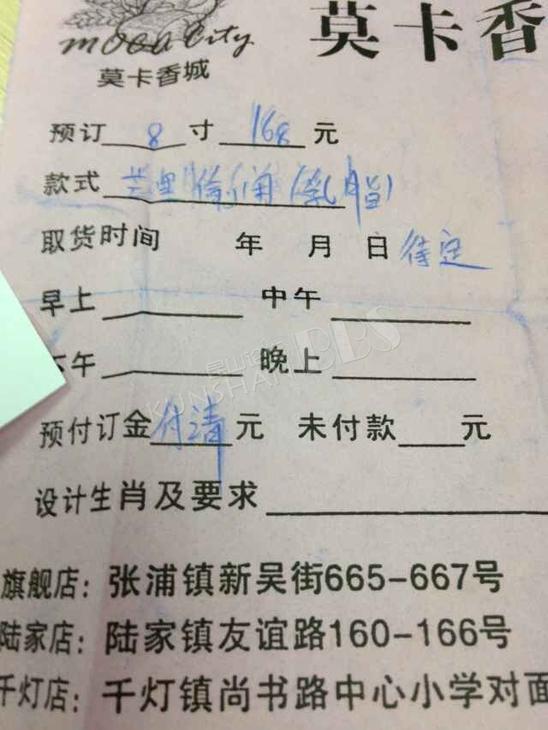 moca City
莫卡香
莫卡香城
预订 8 寸 168 元
款式 芒果 (乳脂)
取货时间 年 月 日 待定
早上 中午
午 晚上
预付订金 付清 元 未付款 元
设计生肖及要求
旗舰店：张浦镇新吴街665-667号
陆家店：陆家镇友谊路160-166号
千灯店：千灯镇尚书路中心小学对面
KUNSHAN BBS